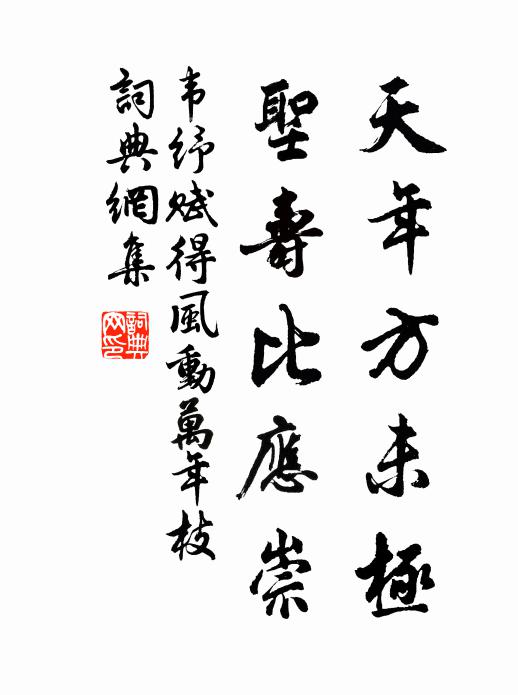 天年方未極
聖壽比應崇
韦紓賦得風動萬年枝
詞典網集
詞典网印